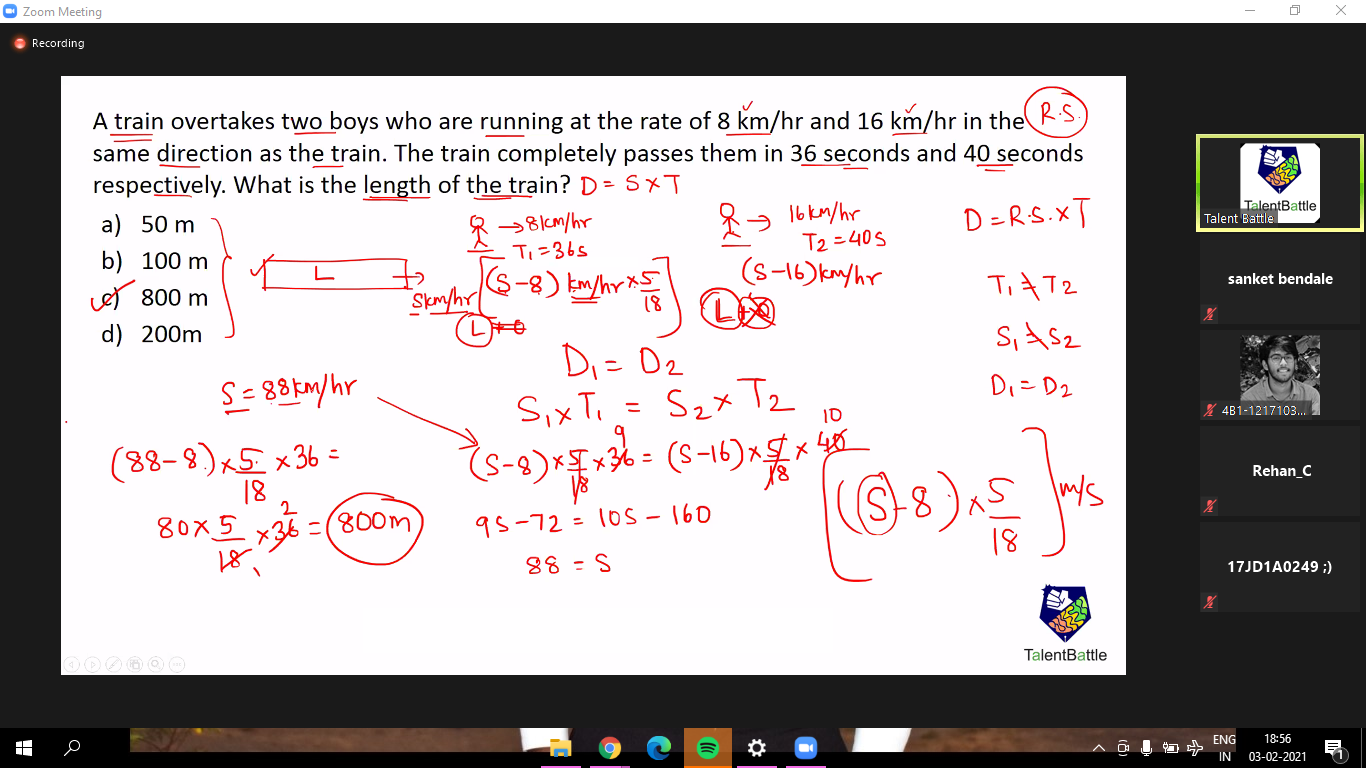 Zoom Meeting
Recording
A train overtakes two boys who are running at the rate of 8 km/hr and 16 km/hr in the
R.S.
same direction as the train. The train completely passes them in 36 seconds and 40 seconds
respectively. What is the length of the train? D = S × T
a) 50 m
b) 100 m
c) 800 m
d) 200m
L
S km/hr
→ 8km/hr
T₁ = 36s
(S-8) km/hr × 5/18
L + 0
→ 16km/hr
T₂ = 40s
(S-16) km/hr
L + 0
D = R.S. × T
T₁ ≠ T₂
S₁ ≠ S₂
D₁ = D₂
D₁ = D₂
S₁ × T₁ = S₂ × T₂
S = 88km/hr
9
10
(S-8) × 5/18 × 36 = (S-16) × 5/18 × 40
9S - 72 = 10S - 160
88 = S
(88-8) × 5/18 × 36 =
2
80 × 5/18 × 36 = 800m
1
((S-8) × 5/18 m/s
TalentBattle
TalentBattle
Talent Battle
sanket bendale
4B1-1217103...
Rehan_C
17JD1A0249 ;)
ENG
IN
18:56
03-02-2021
1